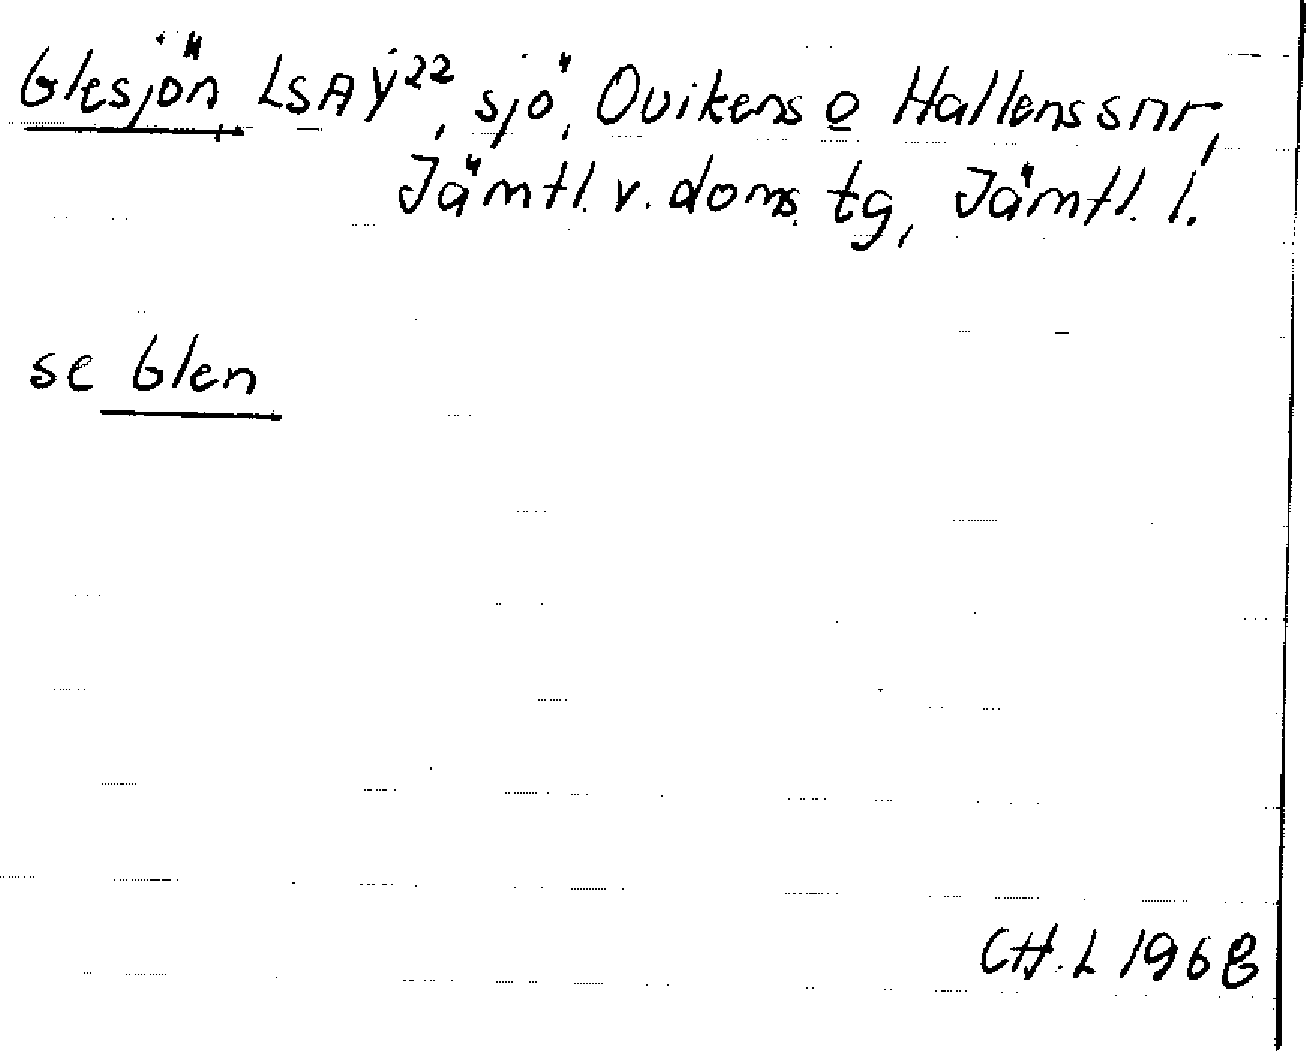 Glesjön LSA Y²², sjö, Ovikens o Hallens snr,
Jämtl. v. doms. tg, Jämtl. l.
se Glen
CH.L 1968